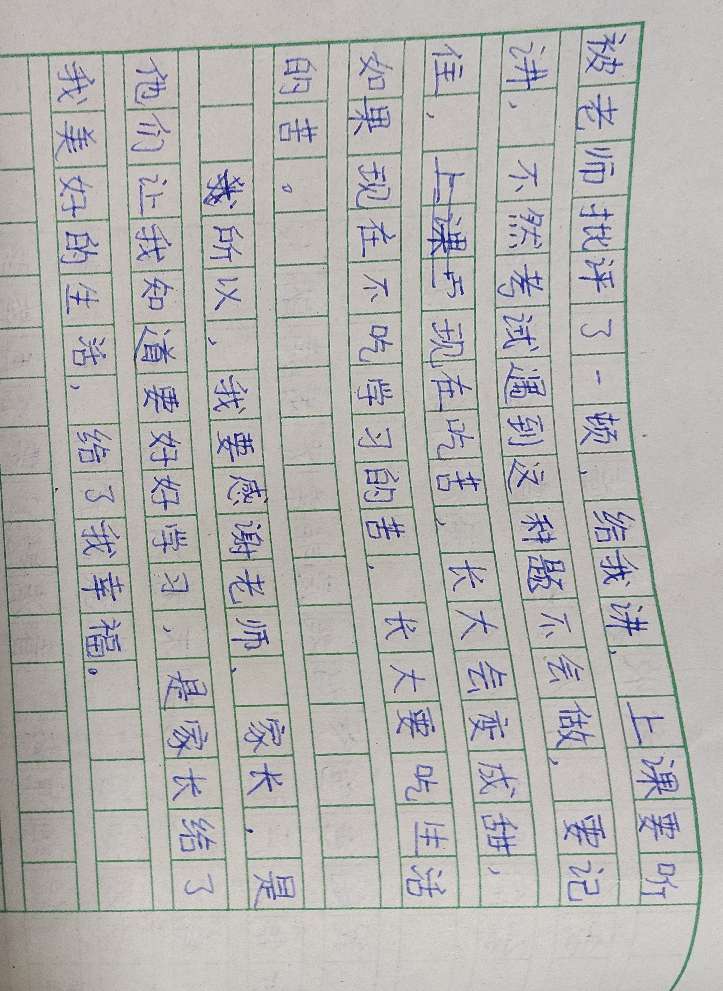 被老师批评了一顿，给我讲，上课要听
讲，不然考试遇到这种题不会做，要记
住，现在吃苦，长大会变成甜，
如果现在不吃学习的苦，长大要吃生活
的苦。
所以，我要感谢老师、家长，是
他们让我知道要好好学习，是家长给了
我美好的生活，给了我幸福。